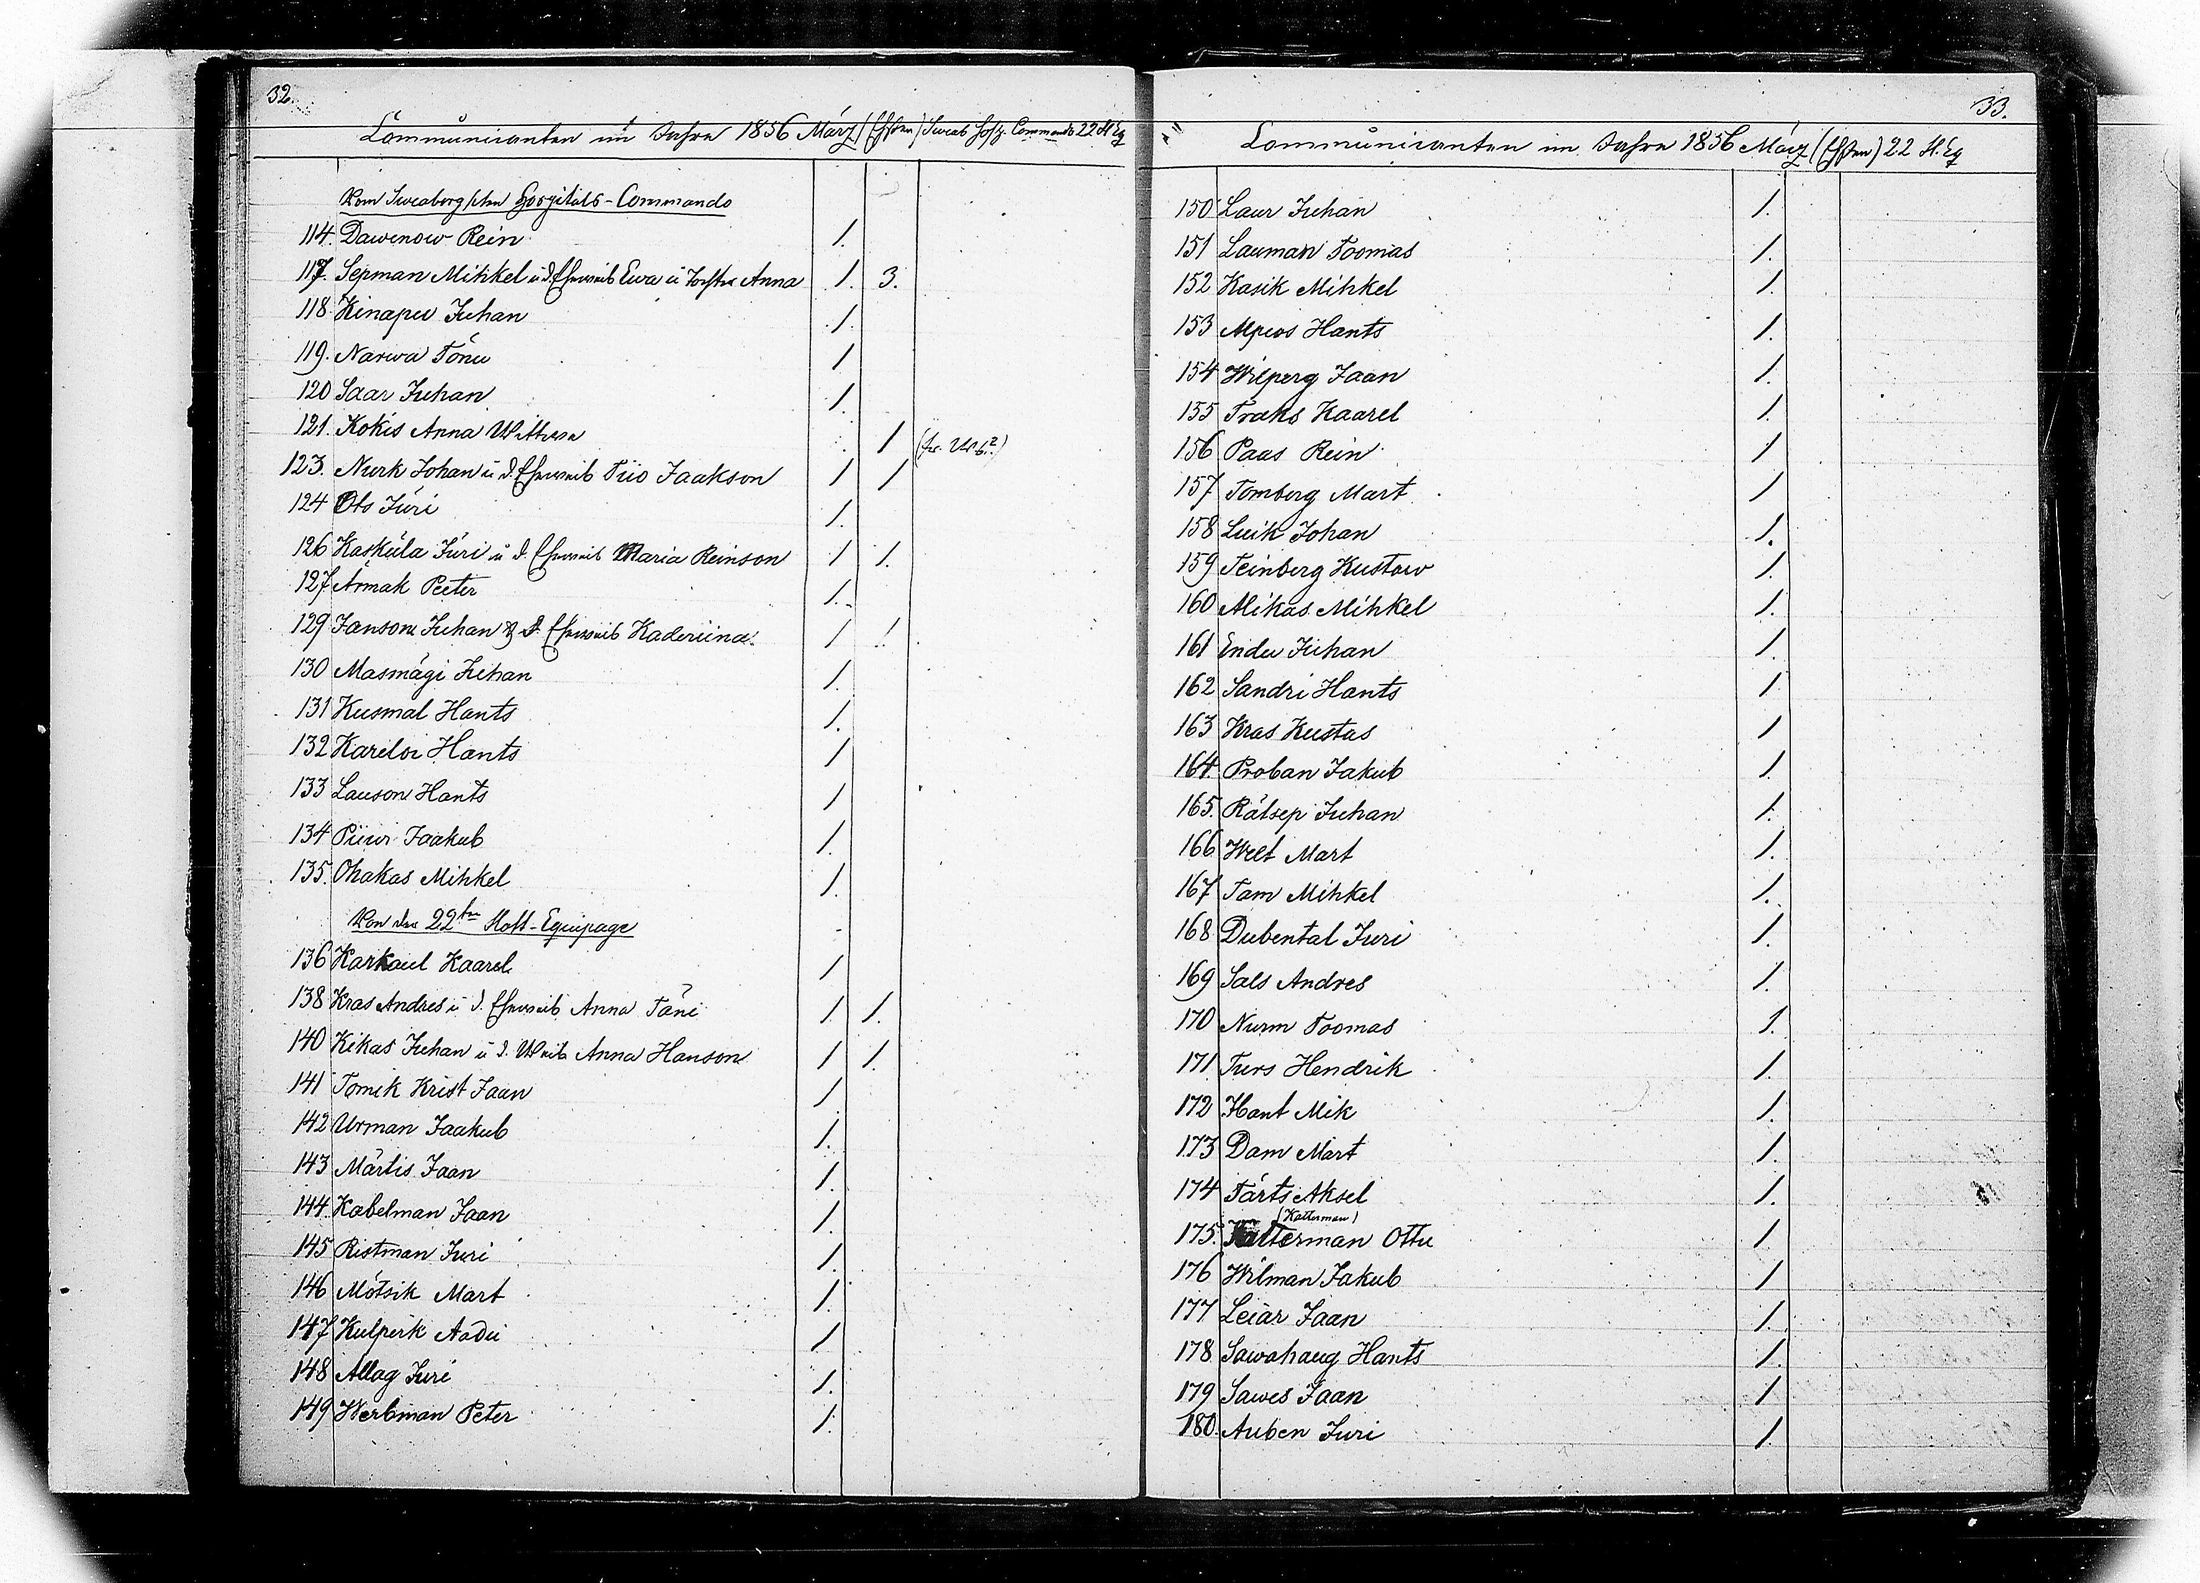 32.
Communicanten im Jahre 1856 März (Ehsten) Sveab. Hosp. Commando 22 Fl. Eq
Vom Sweaborgschen Hospitals-Commando
114. Dawenow Rein 1.
117. Sepman Mihkel u. d. Eheweib Ewa u Tochter Anna 1. 3.
118. Kinapu Juhan 1.
119. Narwa Tõnu 1
120 Saar Juhan 1.
121. Kokis Anna Wittwe 1
123. Nurk Johan u d. Eheweib Tiio Jaakson 1 1
124 Ots Jüri 1.
126 Kasküla Jüri u d. Eheweib Maria Reinson 1 1.
127 Ärmak Peeter 1.
129 Janson Juhan & d. Eheweib Kaderiina. 1 1.
130 Masmägi Juhan 1.
131 Kusmal Hants 1.
132 Kareloi Hants 1
133 Lauson Hants 1
134 Püwi Jaakub 1.
135. Ohakas Mihkel 1.
Von der 22ten Flott-Equipage
136 Karkaul Kaarel 1
138 Kras Andres u d. Eheweib Anna Täni 1 1.
140 Kikas Juhan u d. Weib Anna Hanson 1 1.
141 Tomik Krist Jaan 1.
142 Urman Jaakub 1.
143 Märtis Jaan 1.
144. Kabelman Jaan 1.
145 Ristman Juri 1.
146 Mötsik Mart 1.
147 Kulperk Aadu 1
148 Allag Juri 1.
149 Werbman Peter 1.
33.
Communicanten im Jahre 1856 März (Ehsten) 22 Fl. Eq
150 Laur Juhan 1.
151 Lauman Toomas 1.
152 Kasik Mihkel 1.
153 Mpeos Hants 1.
154 Wilperg Jaan 1.
155 Traks Kaarel 1.
156 Paas Rein 1
157 Tomberg Mart 1
158 Luik Johan 1.
159 Teinberg Kustaw 1.
160 Mikas Mihkel 1.
161 Endu Juhan 1.
162 Sandri Hants 1.
163 Kras Kustas 1
164. Proban Jakub 1.
165. Rätsep Juhan 1.
166 Welt Mart 1.
167 Tam Mihkel 1.
168 Dubental Juri 1.
169 Sals Andres 1.
170 Nurm Toomas 1.
171 Turs Hendrik 1.
172 Hant Mik 1.
173 Dam Mart 1.
174 Tärts Aksel 1.
(Katterman)
175. Katterman Ottu 1
176 Wilman Jakub 1
177 Leiar Jaan 1.
178 Sawahaug Hants 1.
179 Sawes Jaan 1
180. Auben Juri 1.